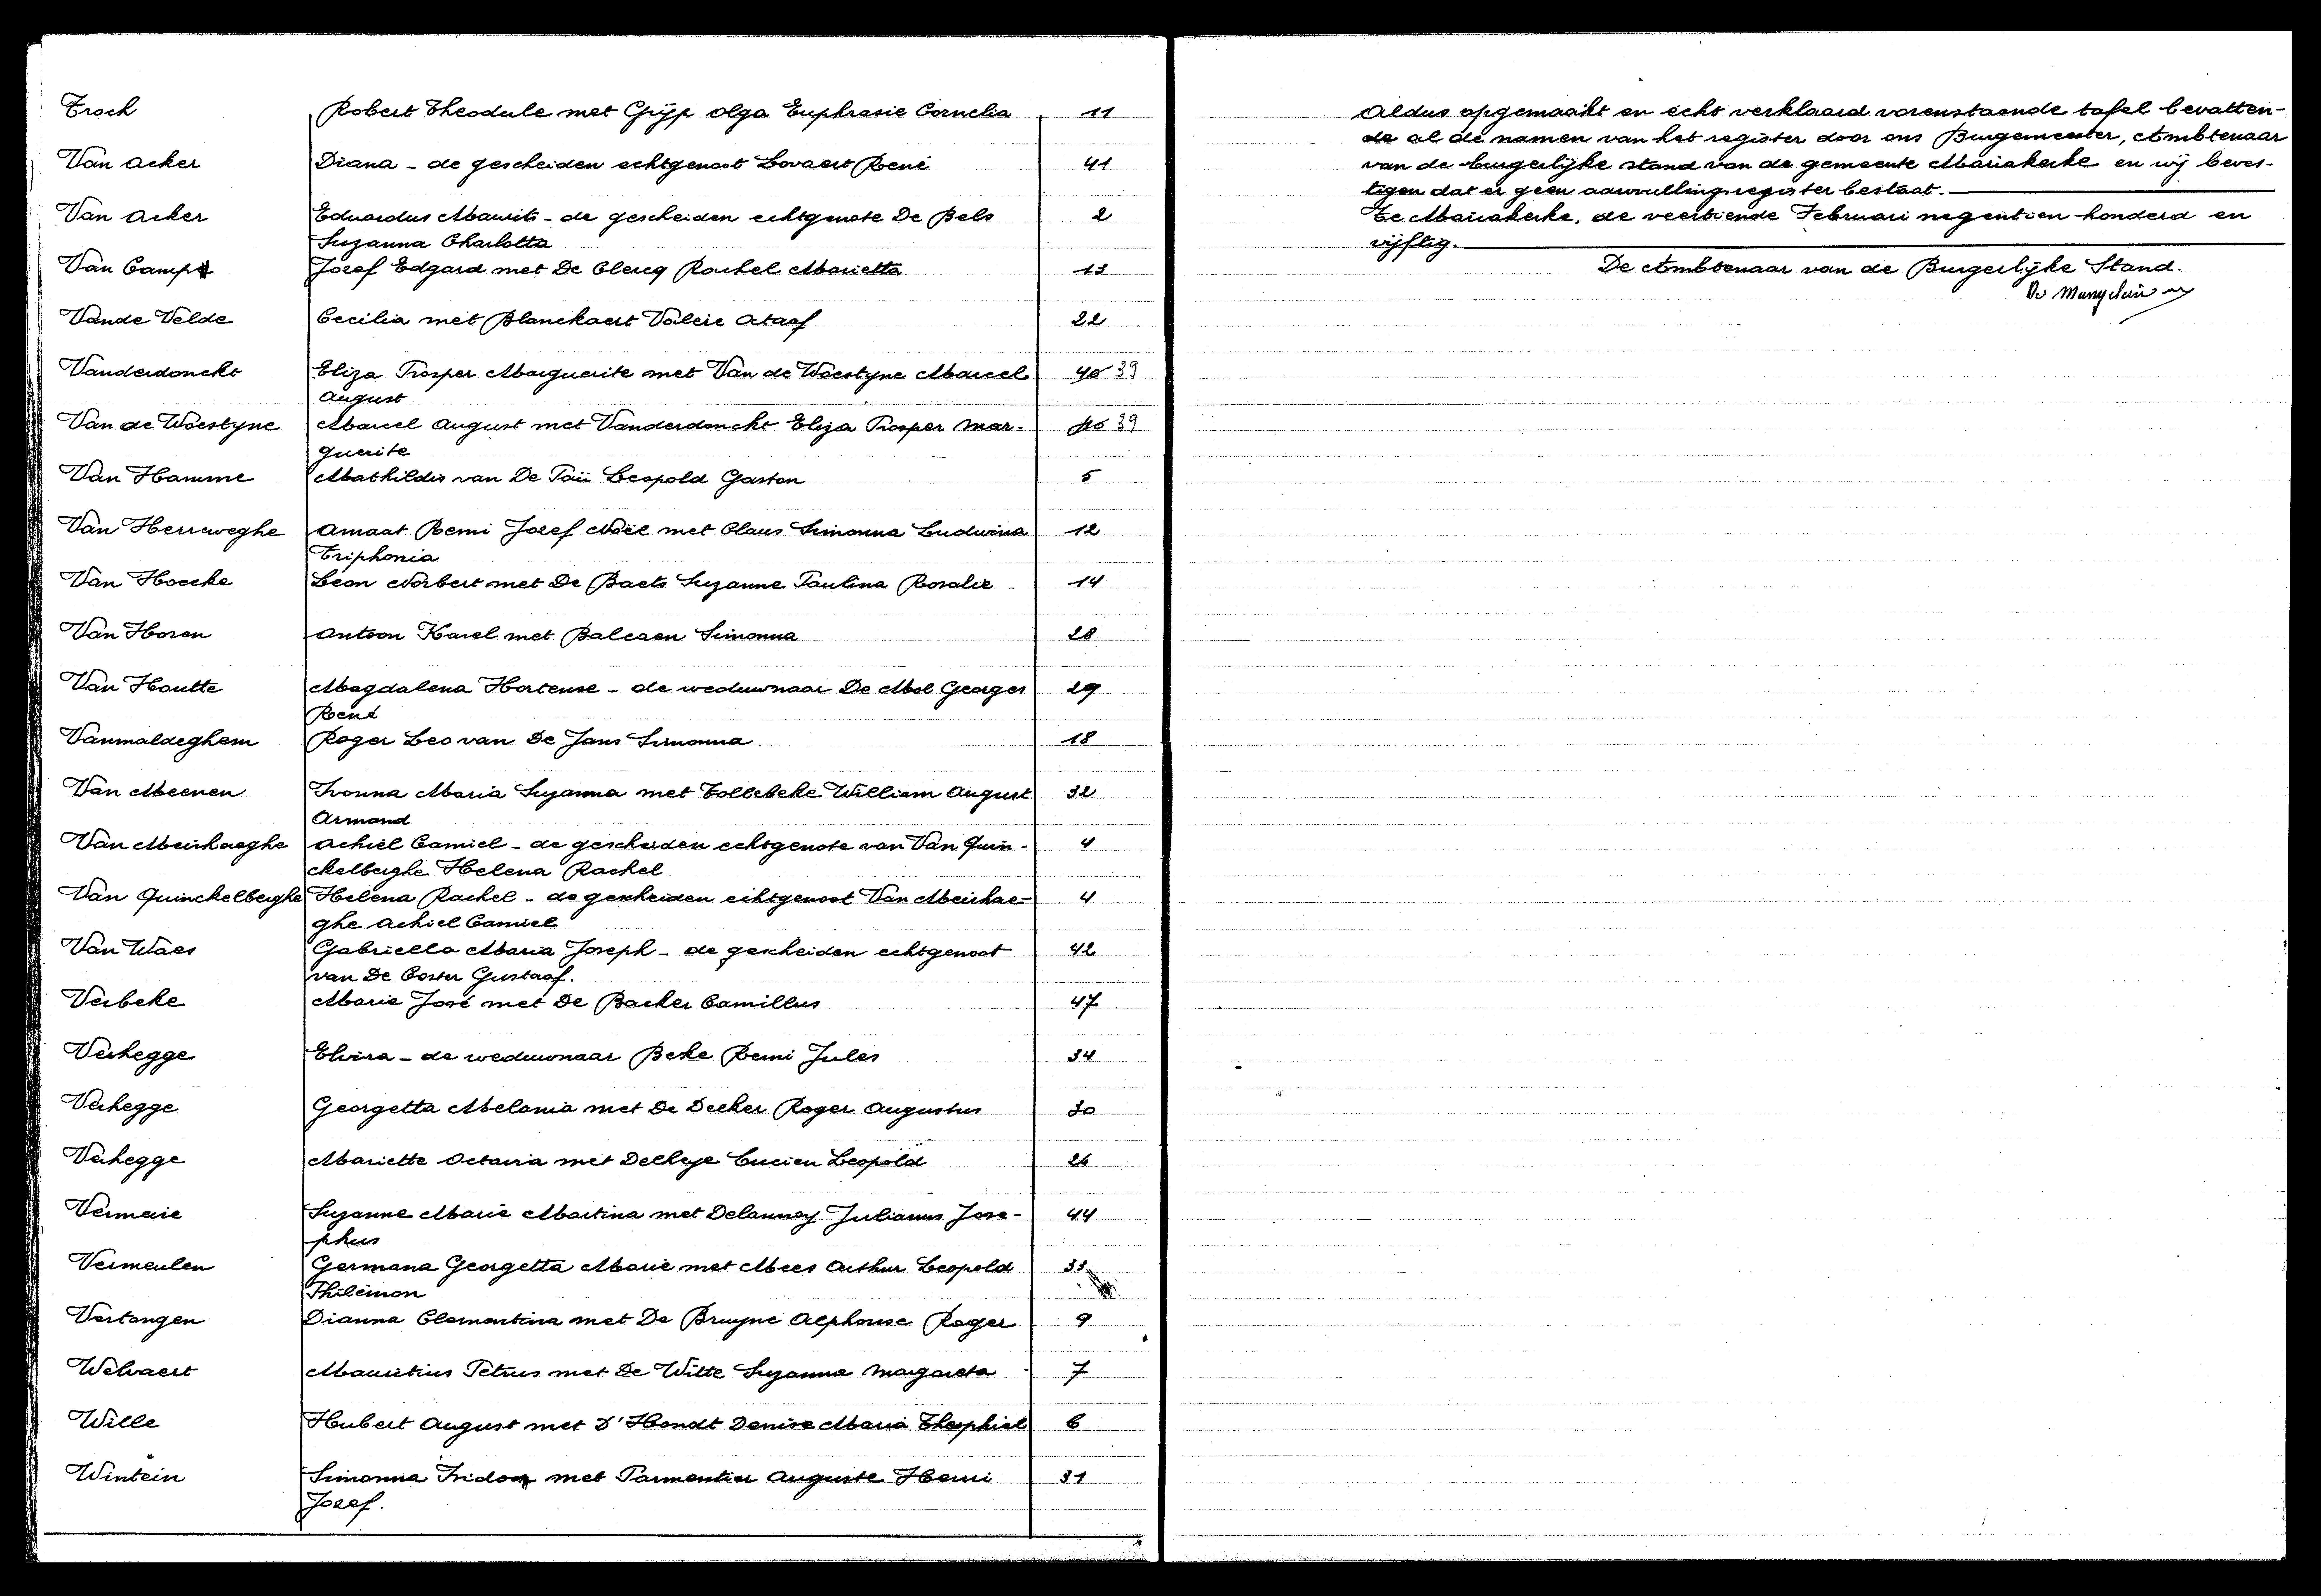 Troch Robert Theodule met Gijp Olga Euphrasie Cornelia 11
Van Acker Diana - de gescheiden echtgenoot Lovaert René 41
Van Acker Eduardus Maurits - de gescheiden echtgenote De Bels 2
Suzanna Charlotta
Van Camp Jozef Edgard met De Clercq Rachel Marietta 13
Van de Velde Cecilia met Blanckaert Valeir Octaaf 22
Vanderdonckt Eliza Prosper Marguerite met Van de Woestyne Marcel 40 39
August
Van de Woestyne Marcel August met Vanderdonckt Eliza Prosper Mar- 40 39
guerite
Van Hamme Mathildis van De Pau Leopold Gaston 5
Van Herreweghe Amaat Remi Jozef Noël met Claus Simonna Ludwina 12
Triphonia
Van Hoecke Leon Norbert met De Baets Suzanne Paulina Rosalie 14
Van Horen Antoon Karel met Balcaen Simonna 28
Van Houtte Magdalena Hortense - de weduwnaar De Mol Georges 29
René
Vanmaldeghem Roger Leo van De Jans Simonna 18
Van Meenen Ivonna Maria Suzanna met Tollebeke William August 32
Armand
Van Meirhaeghe Achiel Camiel - de gescheiden echtgenote van Van Quin- 4
ckelberghe Helena Rachel
Van Quinckelberghe Helena Rachel - de gescheiden echtgenoot Van Meirhae- 4
ghe Achiel Camiel
Van Waes Gabriella Maria Joseph - de gescheiden echtgenoot 42
van De Coster Gustaaf.
Verbeke Marie José met De Backer Camillus 47
Verhegge Elvira - de weduwnaar Beke Remi Jules 34
Verhegge Georgetta Melania met De Decker Roger Augustus 30
Verhegge Mariette Octavia met Delheye Lucien Leopold 26
Vermeire Suzanne Marie Martina met Delannoy Julianus Jose- 44
phus
Vermeulen Germana Georgetta Marie met Mees Arthur Leopold 33
Philemon
Vertongen Dianna Clementina met De Bruyne Alphonse Roger 9
Welvaert Mauritius Petrus met De Witte Suzanna Margareta 7
Wille Hubert August met D'Hondt Denise Maria Theophiel 6
Wintein Simonna Isidoor met Parmentier Auguste Henri 31
Jozef.
Aldus opgemaakt en echt verklaard vorenstaande tafel bevatten-
de al de namen van het register door ons Burgemeester, Ambtenaar
van de burgerlijke stand van de gemeente Mariakerke en wij beves-
tigen dat er geen aanvullingsregister bestaat.
Te Mariakerke, de veertiende Februari negentien honderd en
vijftig.
De Ambtenaar van de Burgerlijke Stand.